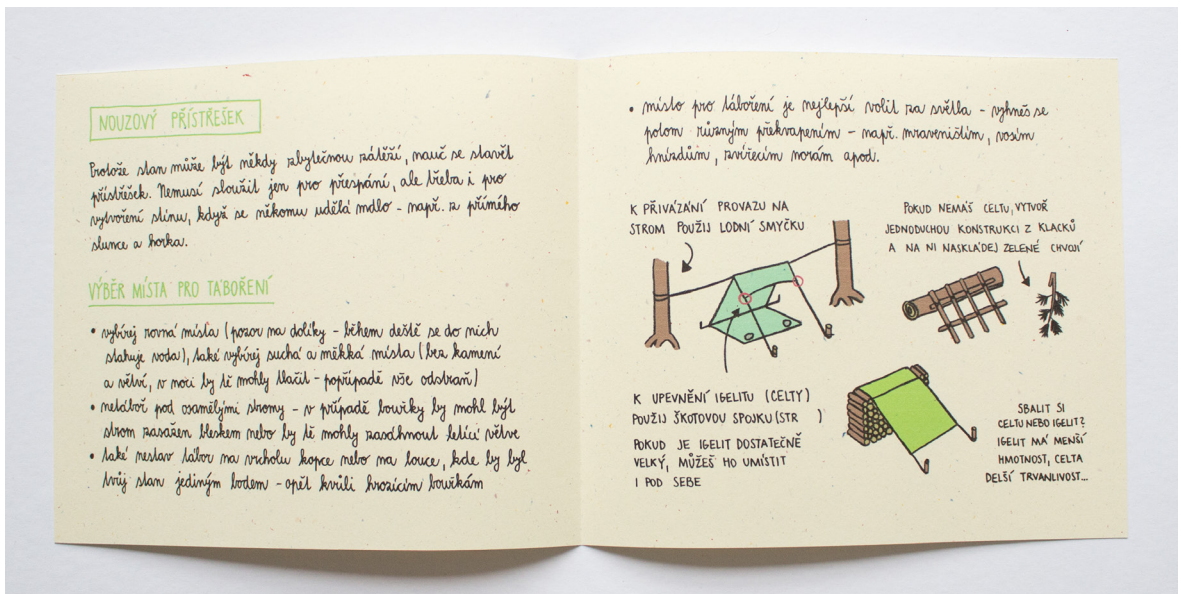 NOUZOVÝ PŘÍSTŘEŠEK
Protože stan může být někdy zbytečnou zátěží, nauč se stavět
přístřešek. Nemusí sloužit jen pro přespání, ale třeba i pro
vytvoření stínu, když se někomu udělá mdlo - např. z přímého
slunce a horka.
VÝBĚR MÍSTA PRO TÁBOŘENÍ
• vybírej rovná místa (pozor na dolíky - během deště se do nich
stahuje voda), také vybírej suchá a měkká místa (bez kamení
a větví, v noci by tě mohly tlačit - popřípadě vše odstraň)
• netáboř pod osamělými stromy - v případě bouřky by mohl být
strom zasažen bleskem nebo by tě mohly zasáhnout letící větve
• také nestav tábor na vrcholu kopce nebo na louce, kde by byl
tvůj stan jediným bodem - opět kvůli hrozícím bouřkám
• místo pro táboření je nejlepší volit za světla - vyhneš se
potom různým překvapením - např. mraveništím, vosím
hnízdům, zvířecím norám apod.
K PŘIVÁZÁNÍ PROVAZU NA
STROM POUŽIJ LODNÍ SMYČKU
POKUD NEMÁŠ CELTU, VYTVOŘ
JEDNODUCHOU KONSTRUKCI Z KLACKŮ
A NA NI NASKLÁDEJ ZELENÉ CHVOJÍ
K UPEVNĚNÍ IGELITU (CELTY)
POUŽIJ ŠKOTOVOU SPOJKU (STR )
POKUD JE IGELIT DOSTATEČNĚ
VELKÝ, MŮŽEŠ HO UMÍSTIT
I POD SEBE
SBALIT SI
CELTU NEBO IGELIT?
IGELIT MÁ MENŠÍ
HMOTNOST, CELTA
DELŠÍ TRVANLIVOST...